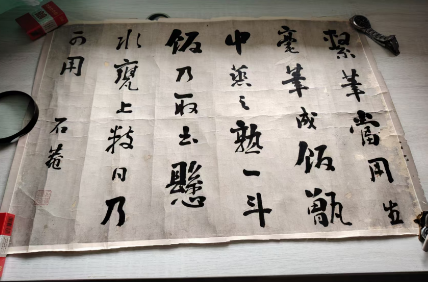 繫筆當用生
毫筆成飯甑
中蒸之熟一斗
飯乃取出懸
水甕上數日乃
可用
石菴